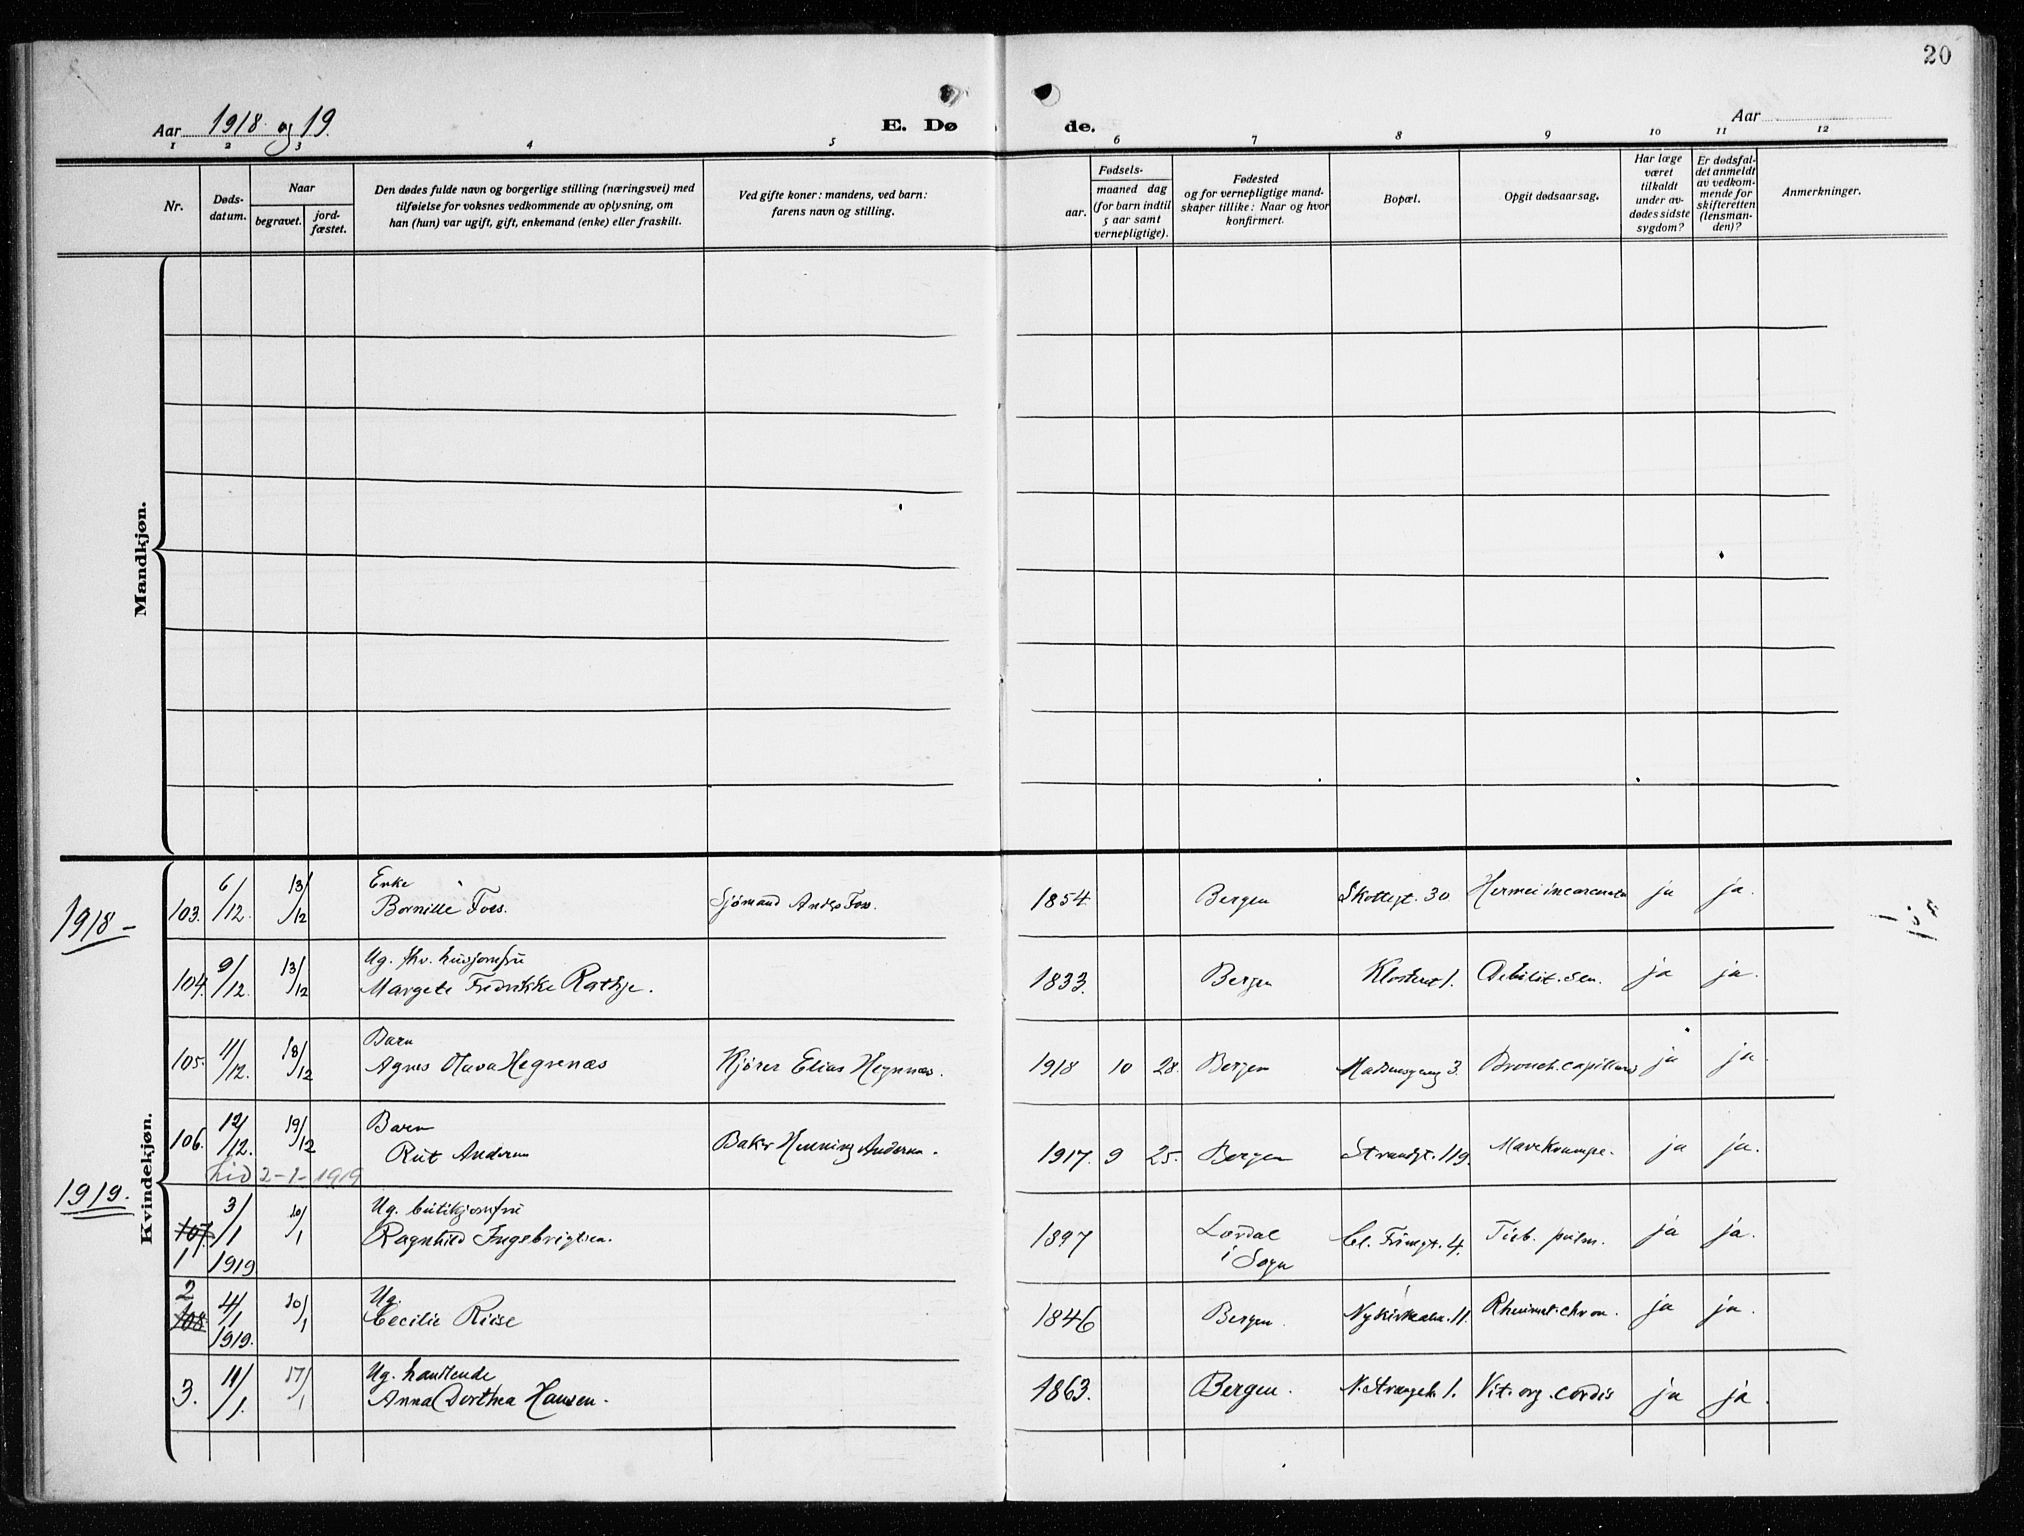 20
Aar 1918 og 19.
E. Dø
de.
Aar
1 2 3 4 5 6 7 8 9 10 11 12
Nr.
Døds-
datum.
Naar
begravet.
jord-
fæstet.
Den dødes fulde navn og borgerlige stilling (næringsvei) med
tilføielse for voksnes vedkommende av oplysning, om
han (hun) var ugift, gift, enkemand (enke) eller fraskilt.
Ved gifte koner: mandens, ved barn:
farens navn og stilling.
Fødsels-
aar.
maaned dag
(for barn indtil
5 aar samt
vernepligtige).
Fødested
og for vernepligtige mand-
skaper tillike: Naar og hvor
konfirmert.
Bopæl.
Opgit dødsaarsag.
Har læge
været
tilkaldt
under av-
dødes sidste
sygdom?
Er dødsfal-
det anmeldt
av vedkom-
mende for
skifteretten
(lensman-
den)?
Anmerkninger.
Mandkjøn.
Kvindekjøn.
1918 –
103. 6/12. 13/12 Enke
Bornille Foss. Sjømand Anders Foss. 1854 Bergen Skottegt. 30 ja ja.
104. 9/12. 13/12 Ug. fhv. husjomfru
Margete Fredrikke Rathje. 1833. Bergen Klosteret 1. Debilit. sen. ja ja.
105. 11/12. 18/12 Barn
Agnes Olava Hegrenæs Kjører Elias Hegrenæs. 1918 10 28. Bergen 3. Bronch. capillaris ja ja.
106. 12/12. 19/12 Barn
Rut Andersen Baker Henning Andersen. 1917. 9 25. Bergen Strandgt. 119. Mavekrampe. ja ja.
2-1-1919
1919.
107. 3/1 10/1 Ug. butikjomfru
1 1919 Ragnhild Ingebrigtsen. 1897 Lærdal
i Sogn 4. Tub. pulm. ja ja.
2
108 4/1 10/1 Ug.
1919. Cecilie Riise 1846 Bergen. 11. Rheumat. chron. ja ja.
3. 10/1. 17/1 Ug. handlende
Anna Dorthea Hansen. 1863. Bergen. 1. Vit. org. cordis ja ja.